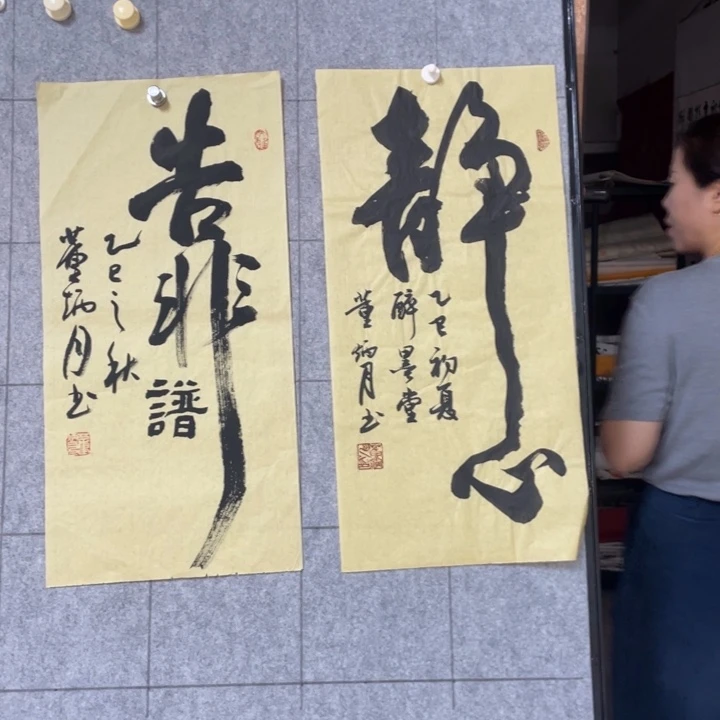 静心
乙巳初夏
醉墨堂
董炳月书
靠譜
乙巳之秋
董炳月书